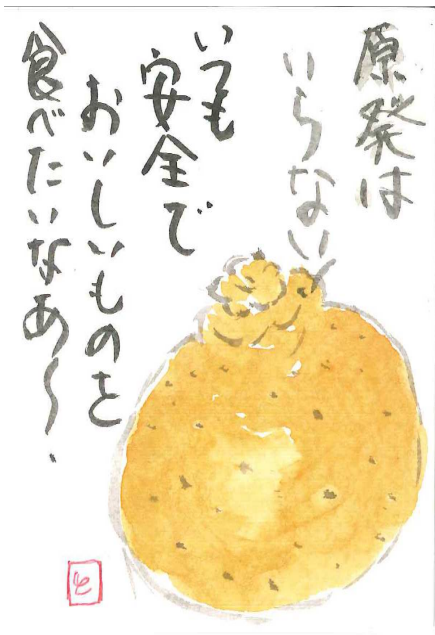 原発は
いらない
いつも
安全で
おいしいものを
食べたいなあ〜、
と